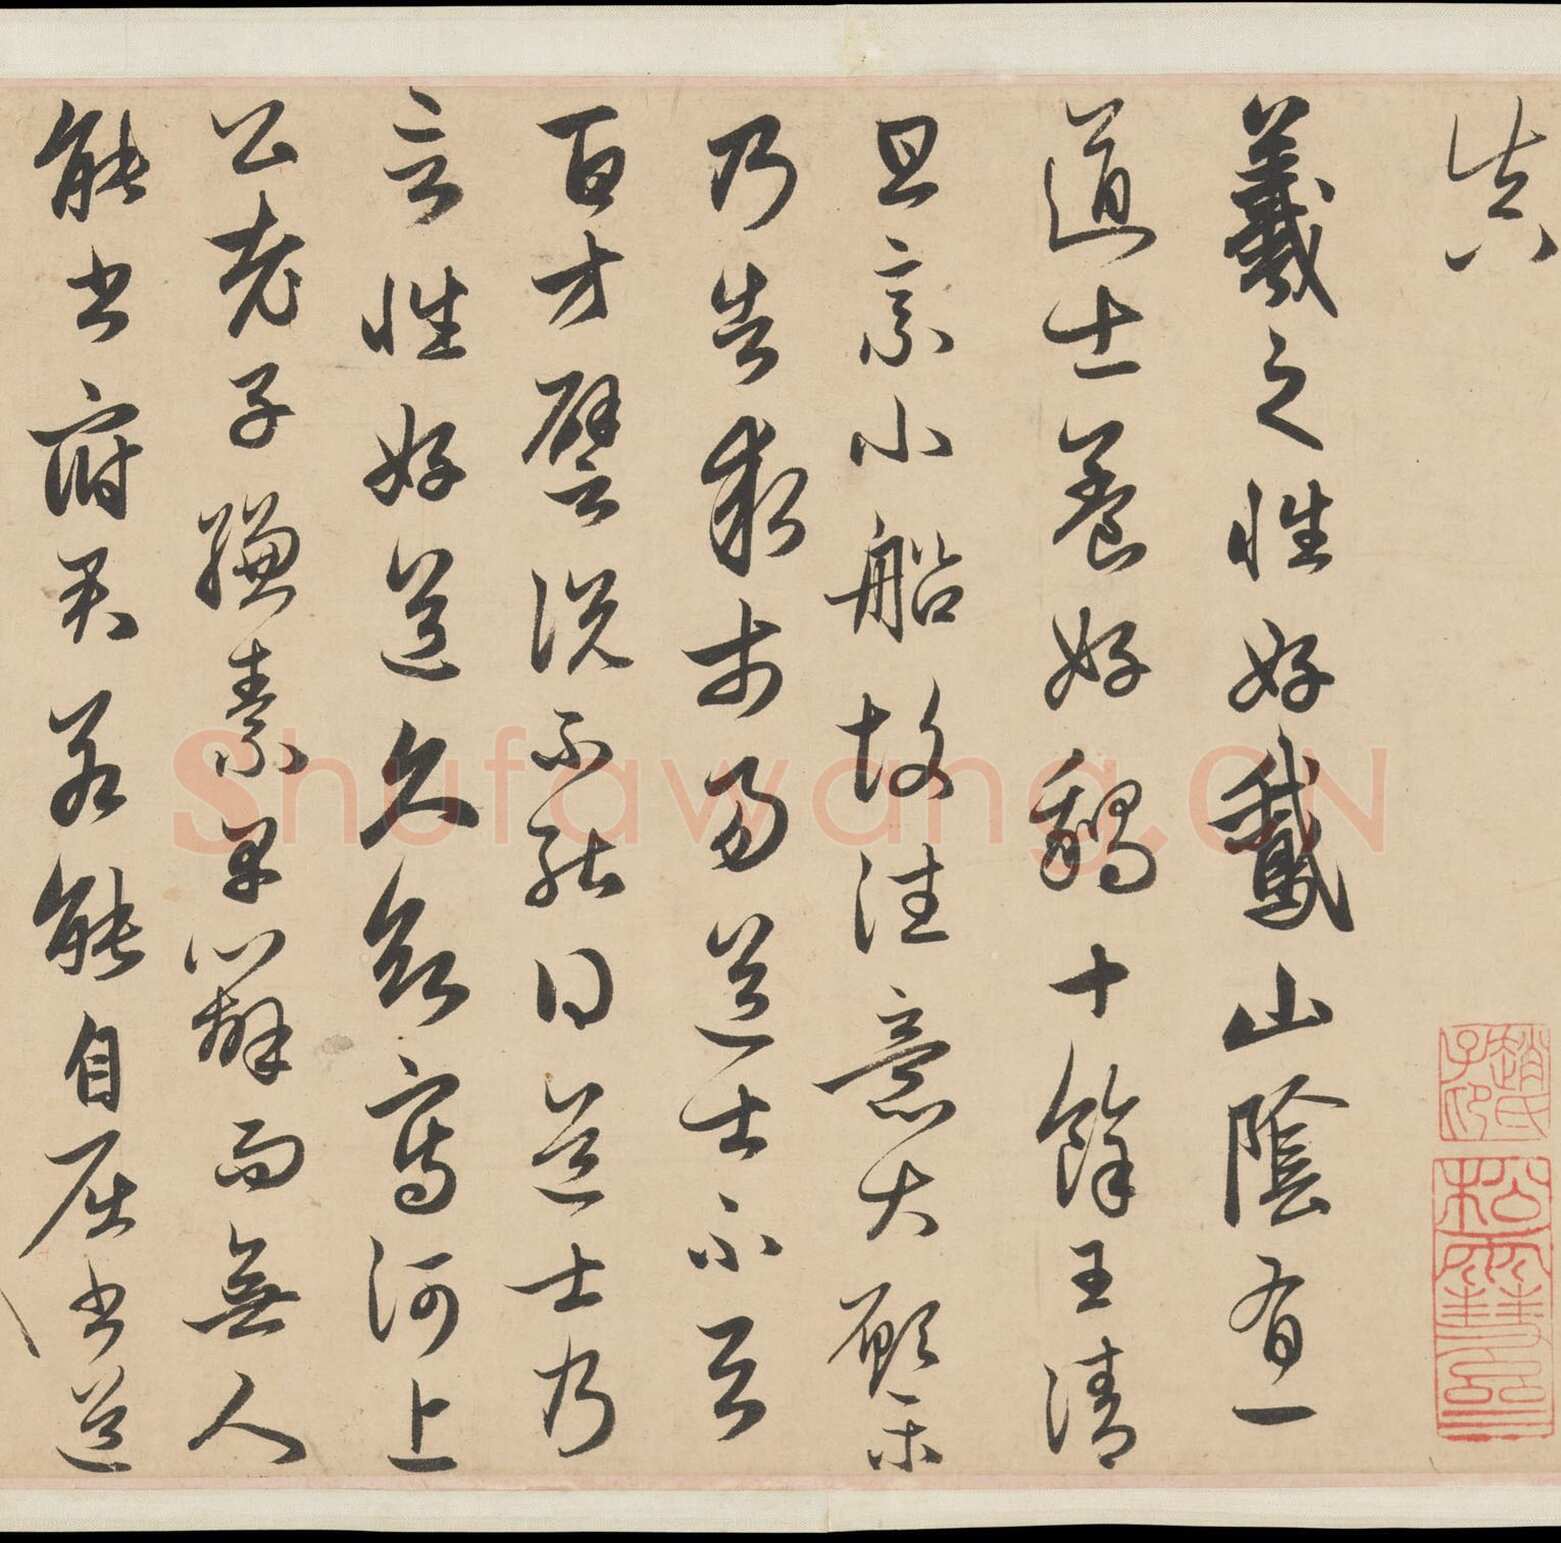 真
羲之性好鵞山陰有一
道士養好鵝十餘王清
旦乘小船故往意大願樂
乃告求市易道士不與
百方譬説不能得道士乃
言性好道久欲寫河上
公老子縑素早辦而無人
能書府君若能自屈書道
趙氏子印
松雪齋
Shufawang.CN